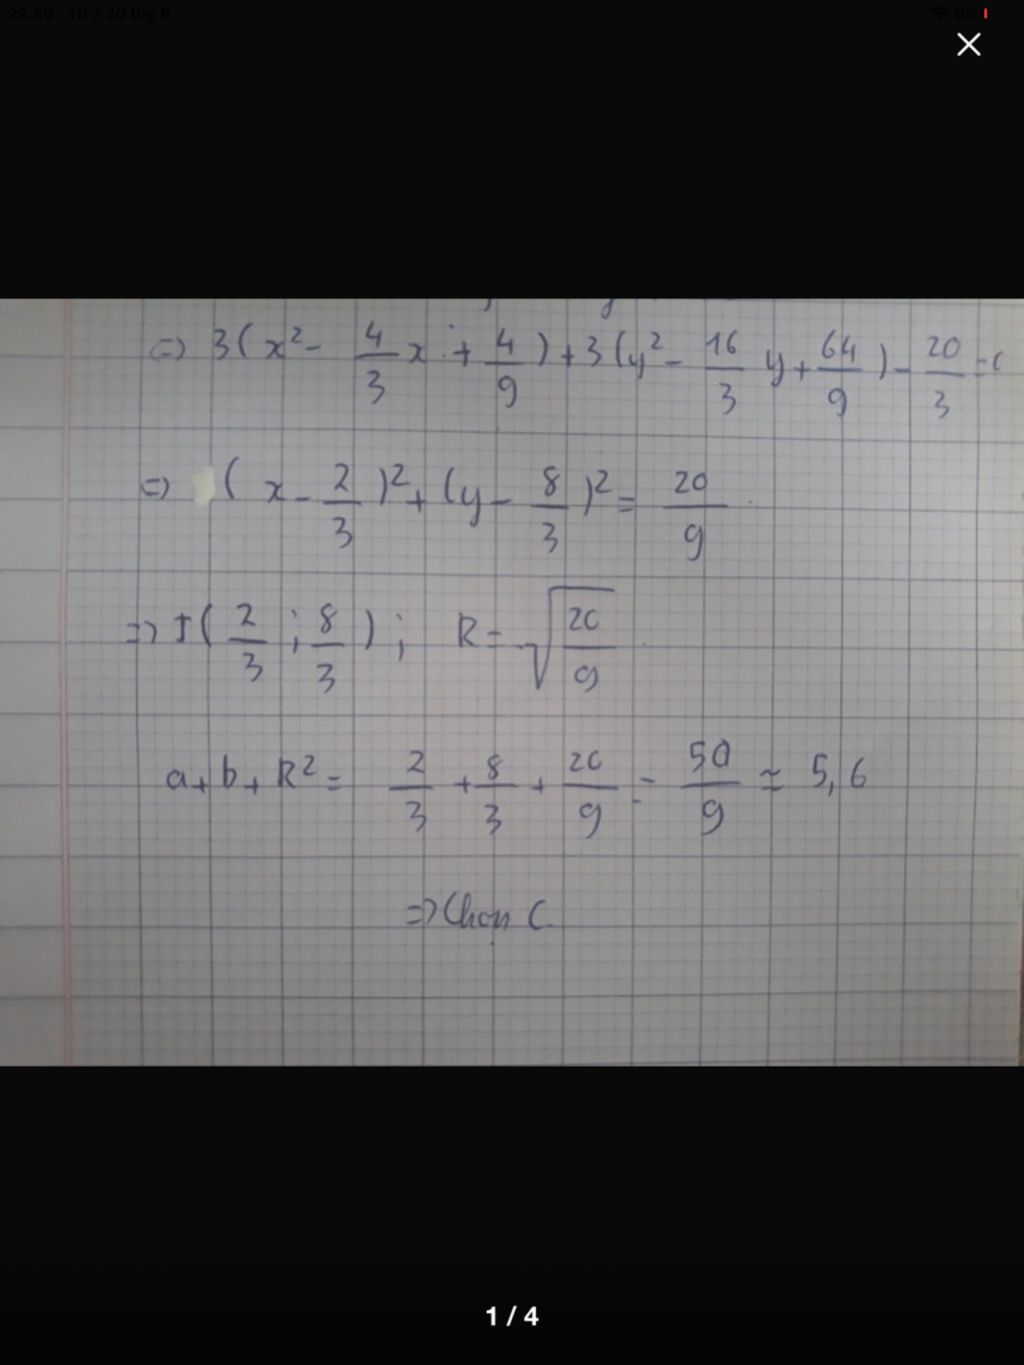 22:50 Th 7 20 thg 6 9%
⇔ 3(x² - 4/3 x + 4/9) + 3(y² - 16/3 y + 64/9) - 20/3 = 0
⇔ (x - 2/3)² + (y - 8/3)² = 20/9
=> I(2/3 ; 8/3) ; R = √(20/9)
a + b + R² = 2/3 + 8/3 + 20/9 = 50/9 ≈ 5,6
=> Chọn C
1 / 4